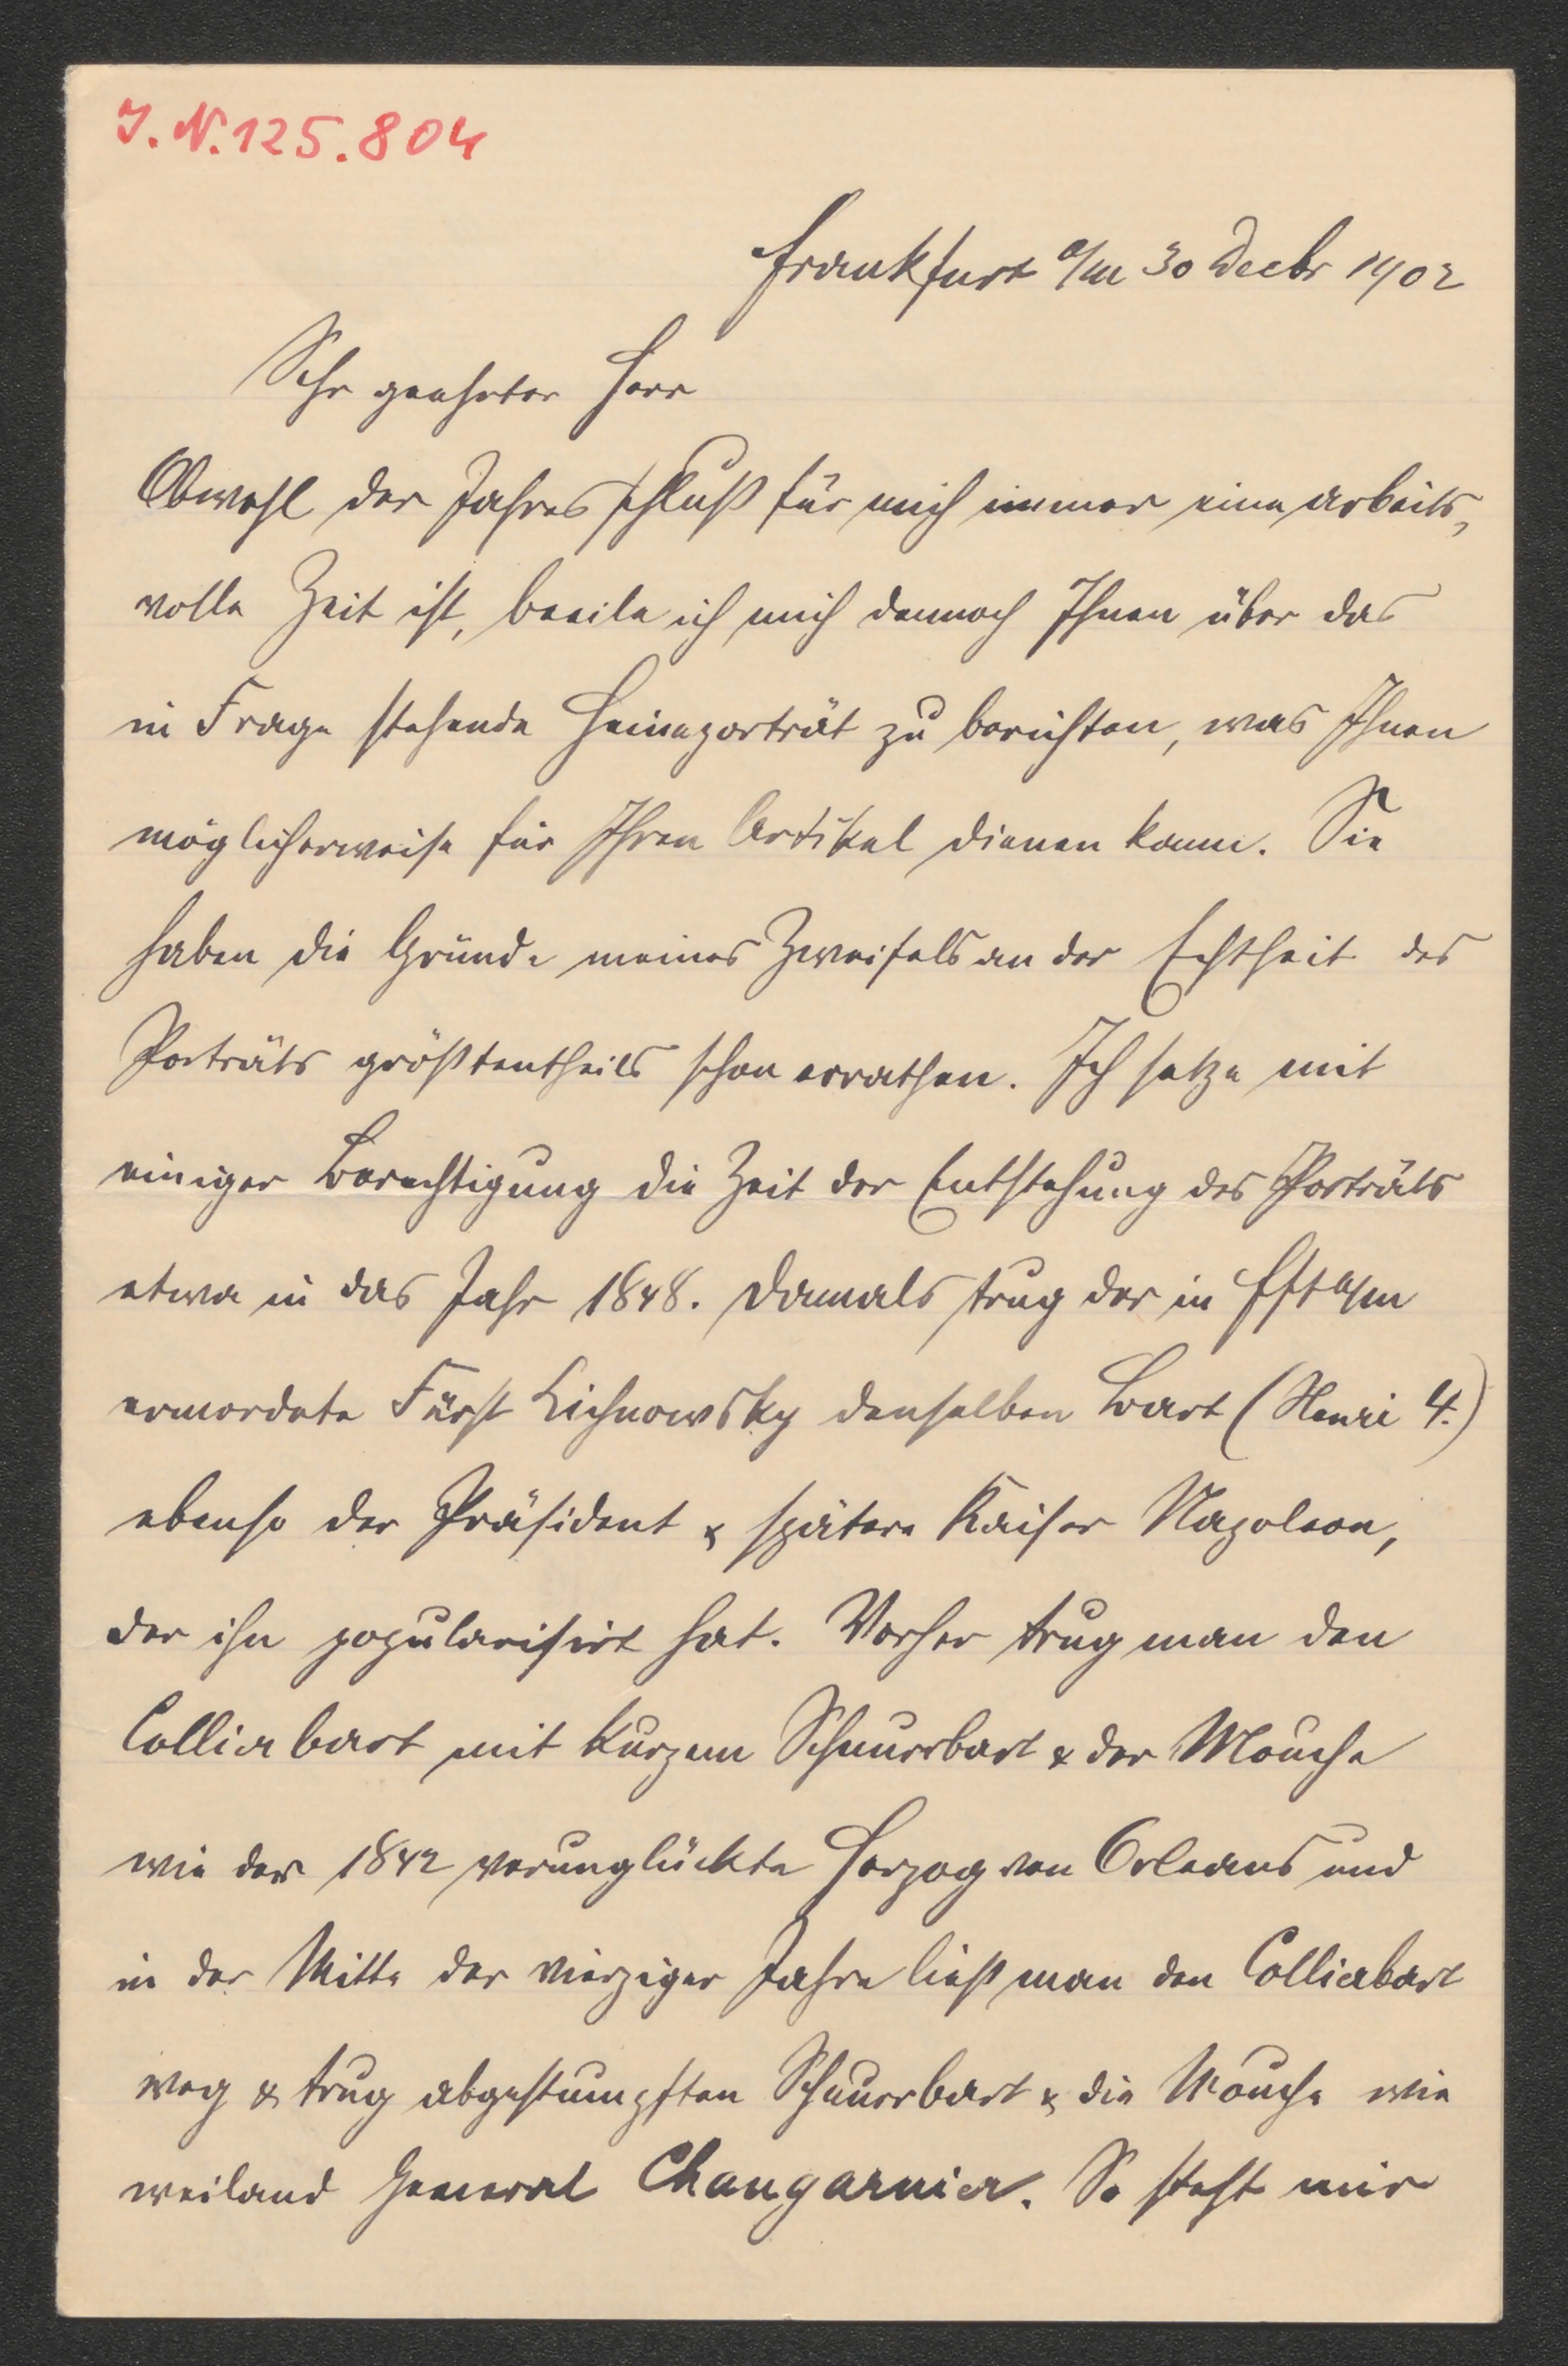 J. N. 125.804
Frankfurt a/m 30 Decbr 1902
Sehr geehrter Herr
Obwohl der Jahresschluß für mich immer eine arbeits,
volle Zeit ist, beeile ich mich dennoch Ihnen über das
in Frage stehende Heineporträt zu berichten, was Ihnen
möglicherweise für Ihren Artikel dienen kann. Sie
haben die Gründe meines Zweifels an der Echtheit des
Porträts größtentheils schon errathen. Ich setze mit
einiger Berechtigung die Zeit der Entstehung des Porträts
etwa in das Jahr 1848. Damals trug der in Fft a/m
ermordete Fürst Lichnowsky denselben Bart (Henri 4.)
ebenso der Präsident & spätere Kaiser Napoleon,
der ihn popularisirt hat. Vorher trug man den
Collierbart mit kurzem Schnurrbart & der Mouche
wie der 1842 verunglückte Herzog von Orleans und
in der Mitte der vierziger Jahre ließ man den Collierbart
weg & trug abgestumpften Schnurrbart & die Mouche wie
weiland General Changarnier. So steht mir